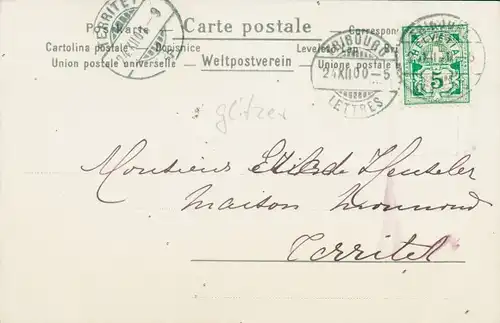 Postkarte Carte postale Correspon
Cartolina postale Dopisnice Levelező-Lap Bri
Union postale universelle Weltpostverein Unione postale
TERRITET
FRIBOURG
24.XII.00-5
LETTRES
FRIBOURG
HELVETIA
5
glitzer
Monsieur de Heuseler
maison Monnond
Territet